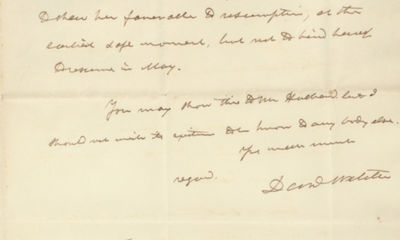 to show her favorable to resumption, at the
earliest safe moment, but not to bind herself
to resume in May.
You may show this to Mr Hubbard, but I
should not wish its existence to be known to any body else.
Yrs with much
regard.
Danl Webster